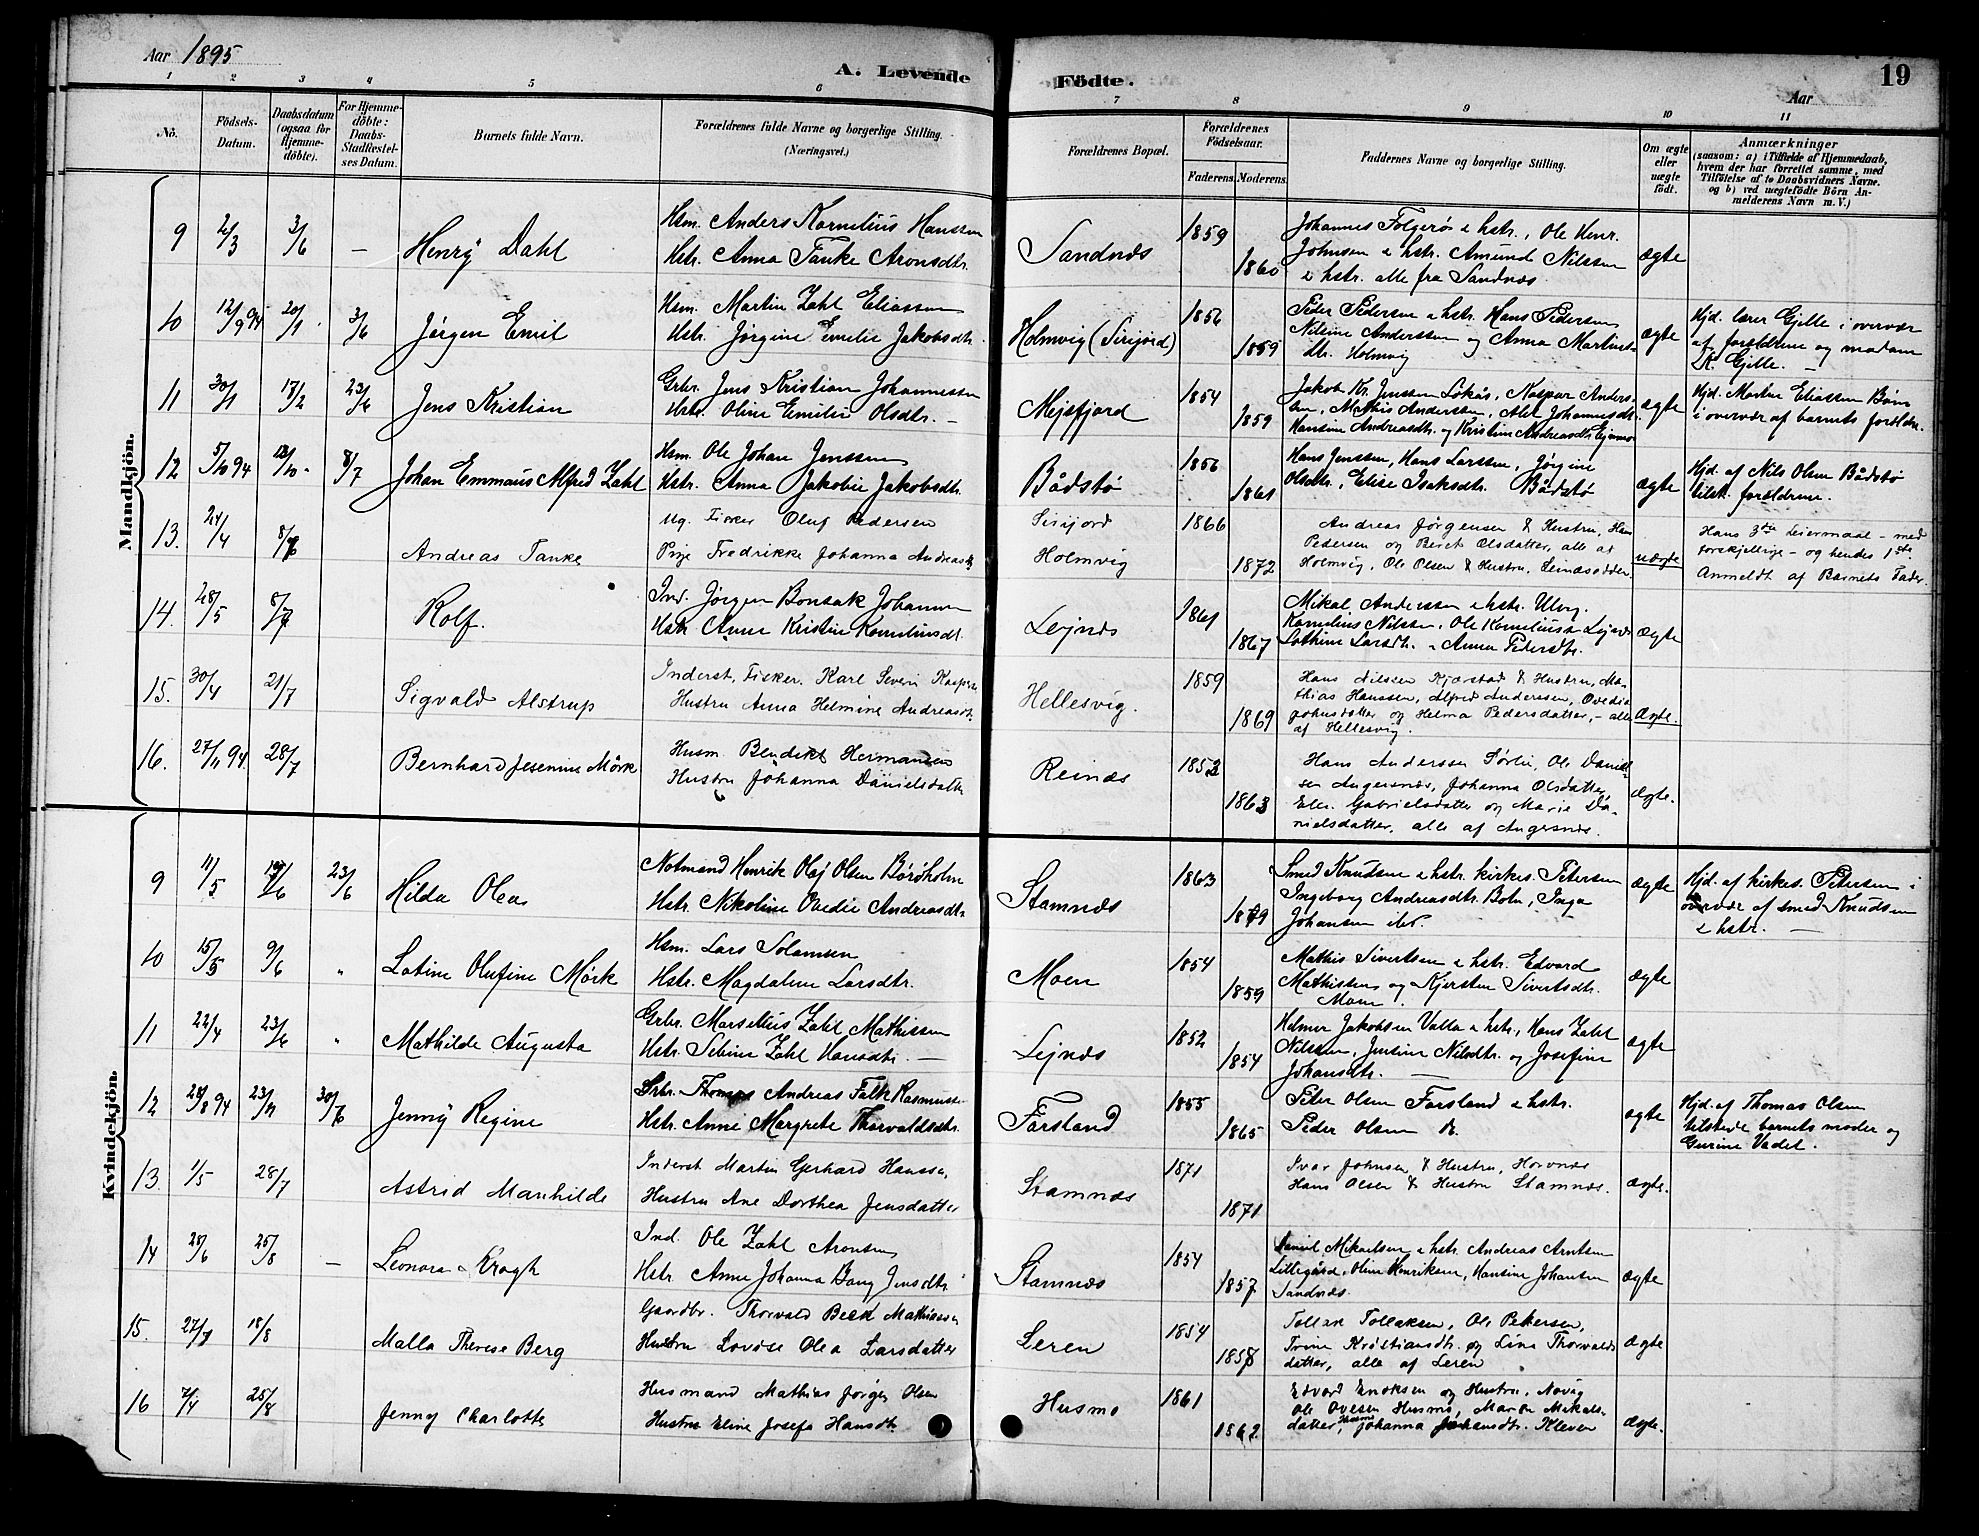 Aar 1895
A. Levende Födte.
19
Aar
1 2 3 4 5 6 7 8 9 10 11
No.
Födsels-Datum.
Daabsdatum (ogsaa for Hjemme-döbte).
For Hjemme-döbte: Daabs-Stadfæstel-ses Datum.
Barnets fulde Navn.
Forældrenes fulde Navne og borgerlige Stilling. (Næringsvei.)
Forældrenes Bopæl.
Forældrenes Födselsaar.
Faderens. Moderens.
Faddernes Navne og borgerlige Stilling.
Om ægte eller uægte födt.
Anmærkninger
(saasom: a) i Tilfælde af Hjemmedaab,
hvem der har forrettet samme, med
Tilföielse af to Daabsvidners Navne.
og b) ved uægtefödte Börn An-
melderens Navn m. V.)
Mandkjön.
9 2/3 3/6 — Henry Dahl
Hsm. Anders Kornelius Hanssen
Hstr. Anna Tanke Aronsdtr.
Sandnæs 1859 1860
Johannes Folgerø & hstr., Ole Henr.
Johnsen & hstr. Amund Nilssen
& hstr. alle fra Sandnæs.
ægte
10 12/9 94 20/1 3/6 Jørgen Emil
Hsm. Martin Zahl Eliassen
Hstr. Jørgine Emelie Jakobsdtr.
Holmvig (Sirijord) 1856 1859
Peder Pedersen & hstr. Hans Pedersen
Nilsine Anderssen og Anna Martins-
dtr. Holmvig
ægte
Hjd. lærer Gjelle i overvær
af forældrene og madam
K. Gjelle. —
11 30/1 17/2 23/6 Jens Kristian
Grbr. Jens Kristian Johannessen
Hstr. Oline Emilie Olsdtr. —
Mejsfjord 1854 1859
Jakob Kr. Jenssen Lokås, Kaspar Anders-
sen, Mathis Anderssen, Alet Johannesdtr.
Hansine Andreasdtr. og Kristine Andreasdtr.
ægte
Hjd. Martin Eliassen
i overvær af barnets forældre.
12 5/10 94 13/10 - 8/7 Johan Emmaus Alfred Zahl
Hsm. Ole Johan Jenssen
Hstr. Anna Jakobie Jakobsdtr.
Bådstø 1856 1861
Hans Jenssen, Hans Larssen, Jørgine
Olsdtr., Elise Isaksdtr. Bådstø
ægte
Hjd. af Nils Olsen Bådstø
tilst. forældrene.
13. 24/4 8/7 Andreas Tanke
Ug. Fisker Oluf Pedersen
Pige Fredrikke Johanna Andreasdtr.
Sirijord
Holmvig 1866 1872
Andreas Jørgensen & Hustru, Hans
Pedersen og Beret Olsdatter, alle af
Holmvig, Ole Olsen & Hustru, Leinæsodden.
uægte
Hans 3die Leiermaal - med
forskjellige - og hendes 1ste.
Anmeldt af Barnets Fader.
14. 28/5 8/7 Rolf.
Ind. Jørgen Bonsak Johansen
Hstr. Anne Kristine Korneliusdt.
Lejnæs 1861 1867
Mikal Anderssen & hstr. Ulvig.
Kornelius Nilssen, Ole Korneliuss. Lejnæs
Lothine Larsdtr. Anna Pedersdtr.
ægte
15. 30/4 21/7 Sigvald Alstrup
Inderst, Fisker. Karl Severi Kaspers.
Hustru Anna Helmine Andreasdt.
Hellesvig. 1859 1869
Hans Nilssen Kjærstad & Hustru, Ma-
thias Hanssen, Alfred Anderssen, Ovedia
Johnsdatter og Helma Pedersdatter, - alle
af Hellesvig.
Ægte.
16. 27/11 94. 28/7 Bernhard Jesenius Mörk
Husm. Bendikt Hermansen
Hustru Johanna Danielsdatter
Reinæs 1852 1863
Hans Anderssen Sørlie, Ole Daniel-
sen Angersnæs, Johanna Olsdatter,
Elen Gabrielsdatter og Marie Da-
nielsdatter, alle af Angersnæs.
Ægte.
Kvindekjön.
9 11/5 /6 23/6 Hilda Olea
Notmand Henrik Olaj Olsen Børøholm
Hstr. Nikoline Ovedie Andreasdtr
Stamnæs 1863 1869
Smed Knudsen & hstr. kirkes. Petersen
Ingeborg Andreasdtr. Botn, Inga
Johansen ibd.
ægte
Hjd. af kirkes. Petersen i
overvær af smed Knudsen
& hstr. —
10 15/5 9/6 " Lotine Olufine Mörk
Hsm. Lars Solamsen
Hstr. Magdalene Larsdtr.
Moen 1854 1859
Mathis Sivertsen & hstr. Edvard
Mathissen og Kjersten Sivertsdtr.
Moen.
ægte
11 22/4 23/6 " Mathilde Augusta
Grbr. Marselius Zahl Mathissen
Hstr. Sebine Zahl Hansdtr. —
Lejnæs 1852 1854
Helmer Jakobsen Valla & hstr., Hans Zahl
Nilssen, Justine Nilsdtr. og Josefine
Johansdtr. —
ægte
12 28/8 94 23/11 30/6 Jenny Regine
Grbr. Thomas Andreas Falk Rasmussen
Hstr. Anne Margrete Thorvaldsdtr.
Forsland 1855 1865
Peter Olsen Forsland & hstr.
Peder Olsen
ægte
Hjd. af Thomas Olsen
tilstede barnets moder og
Gurine Vadet.
13. 1/5 28/7 Astrid Manhilde
Inderst Martin Gerhard Hanssen,
Hustru Ane Dorthea Jensdatter
Stamnæs 1871 1871
Ivar Johnsen & Hustru, Horvnæs
Hans Olsen & Hustru Stamnæs.
Ægte.
14 28/6 25/8 — Leonora Krogh
Ind. Ole Zahl Aronsen
Hstr. Anne Johanna Bang Jensdtr.
Stamnæs 1854 1857
Daniel Mikaelsen & hstr. Andreas Arntsen
Littlegård, Oline Henriksen, Hansine Johansen
Sandnæs.
Ægte
15. 27/7 18/8 Malla Therese Berg
Gaardbr. Thorvald Beck Mathiassen
Hustru Lovise Olea Larsdatter
Leren 1854 1858
Tollak Tollaksen, Ole Petersen,
Trine Kristiansdtr. og Lina Thorvalds-
datter, alle af Leren
Ægte
16 7/4 25/8 Jenny Charlotte
Husmand Mathias Jørgen Olsen
Hustru Eline Josefa Hansdtr.
Husmo 1861 1862
Edvard Enoksen og Hustru. Novig
Ole Ovesen Husmo, Maren Mikals-
datter, Husmo Johanna Johansdtr. Kleven
Ægte.